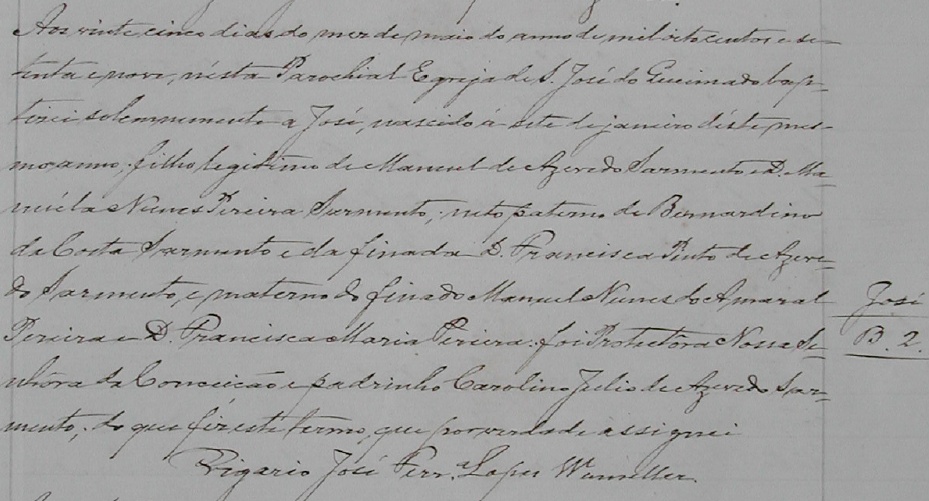 Aos vinte cinco dias do mez de maio do anno de mil oito centos e se-
tenta e nove, nésta Parochial Egreja de S. José do Queimado bap-
tisei solemnemente a José, nascido á sete de janeiro déste mes-
mo anno, filho legitimo de Manuel de Azevedo Sarmento e D. Ma-
nuéla Nunes Pereira Sarmento, neto paterno de Bernardino
da Costa Sarmento e da finada D. Francisca Pinto de Azeve-
do Sarmento, e materno do finado Manuel Nunes do Amaral
José
Pereira e D. Francisca Maria Pereira: foi Protectôra Nossa Se-
B. 2.
nhôra da Conceição e padrinho Carolino Julio de Azevedo Sar-
mento, do que fiz este termo, que por verdade assignei
Vigario José Ferr.ª Lopes